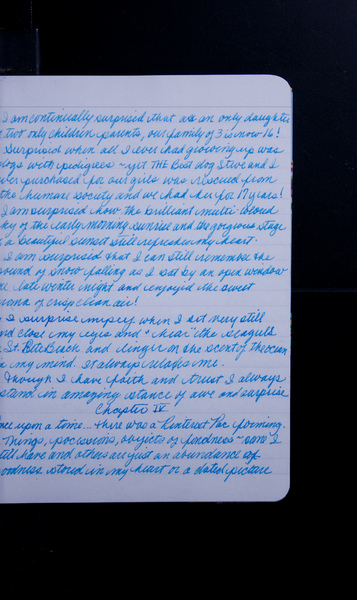 I am continually surprised that as an only daughter
two only children parents, our family of 3 is now 16!
Surprised when all I ever had growing up was
dogs with pedigrees ~ yet THE Best dog Steve and I
ever purchased for our girls was rescued from
the humane society and we had her for 17 years!
I am surprised how the brilliant multi-
sky of the early morning sunrise and the gorgeous stage
a beautiful sunset still refreshes my heart.
I am surprised that I can still remember the
sound of snow falling as I sat by an open window
one late winter night and enjoyed the sweet
aroma of crisp clean air!
I surprise myself when I sit very still
and close my eyes and "hear" the seagulls
St. Pete Beach and linger on the scent of the ocean
in my mind. It always relaxes me.
Though I have faith and trust I always
stand in amazing stance of awe and surprise
Chapter IV
once upon a time... there was a Pinterest Pac forming.
Things, possessions, objects of fondness ~ some I
still have and others are just an abundance of
goodness stored in my heart or a dated picture